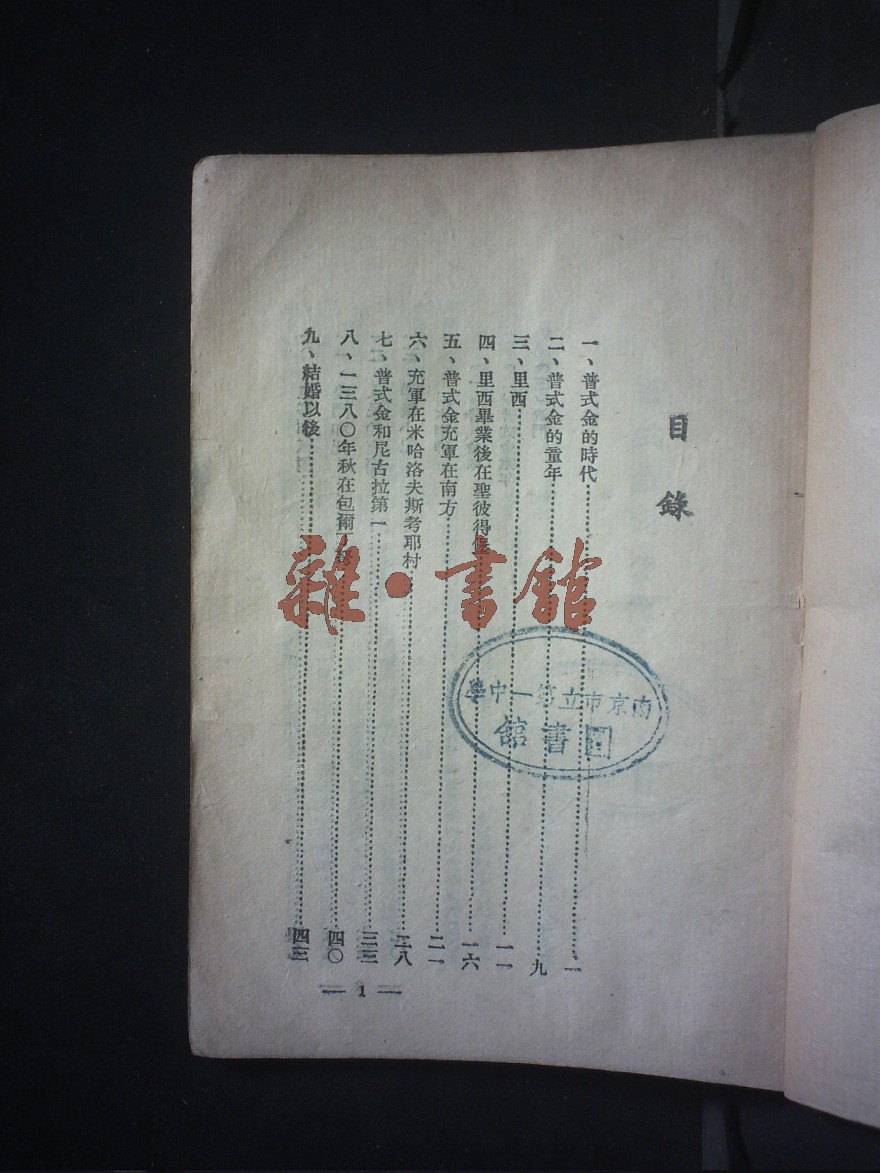 目錄
一、普式金的時代⋯⋯一
二、普式金的童年⋯⋯九
三、里西⋯⋯一一
四、里西畢業後在聖彼得堡⋯⋯一六
五、普式金充軍在南方⋯⋯二一
六、充軍在米哈洛夫斯考耶村⋯⋯二八
七、普式金和尼古拉第一⋯⋯三三
八、一三八〇年秋在包爾⋯⋯四〇
九、結婚以後⋯⋯四三
— 1 —
雜·書館
南京市立第一中學
圖書館